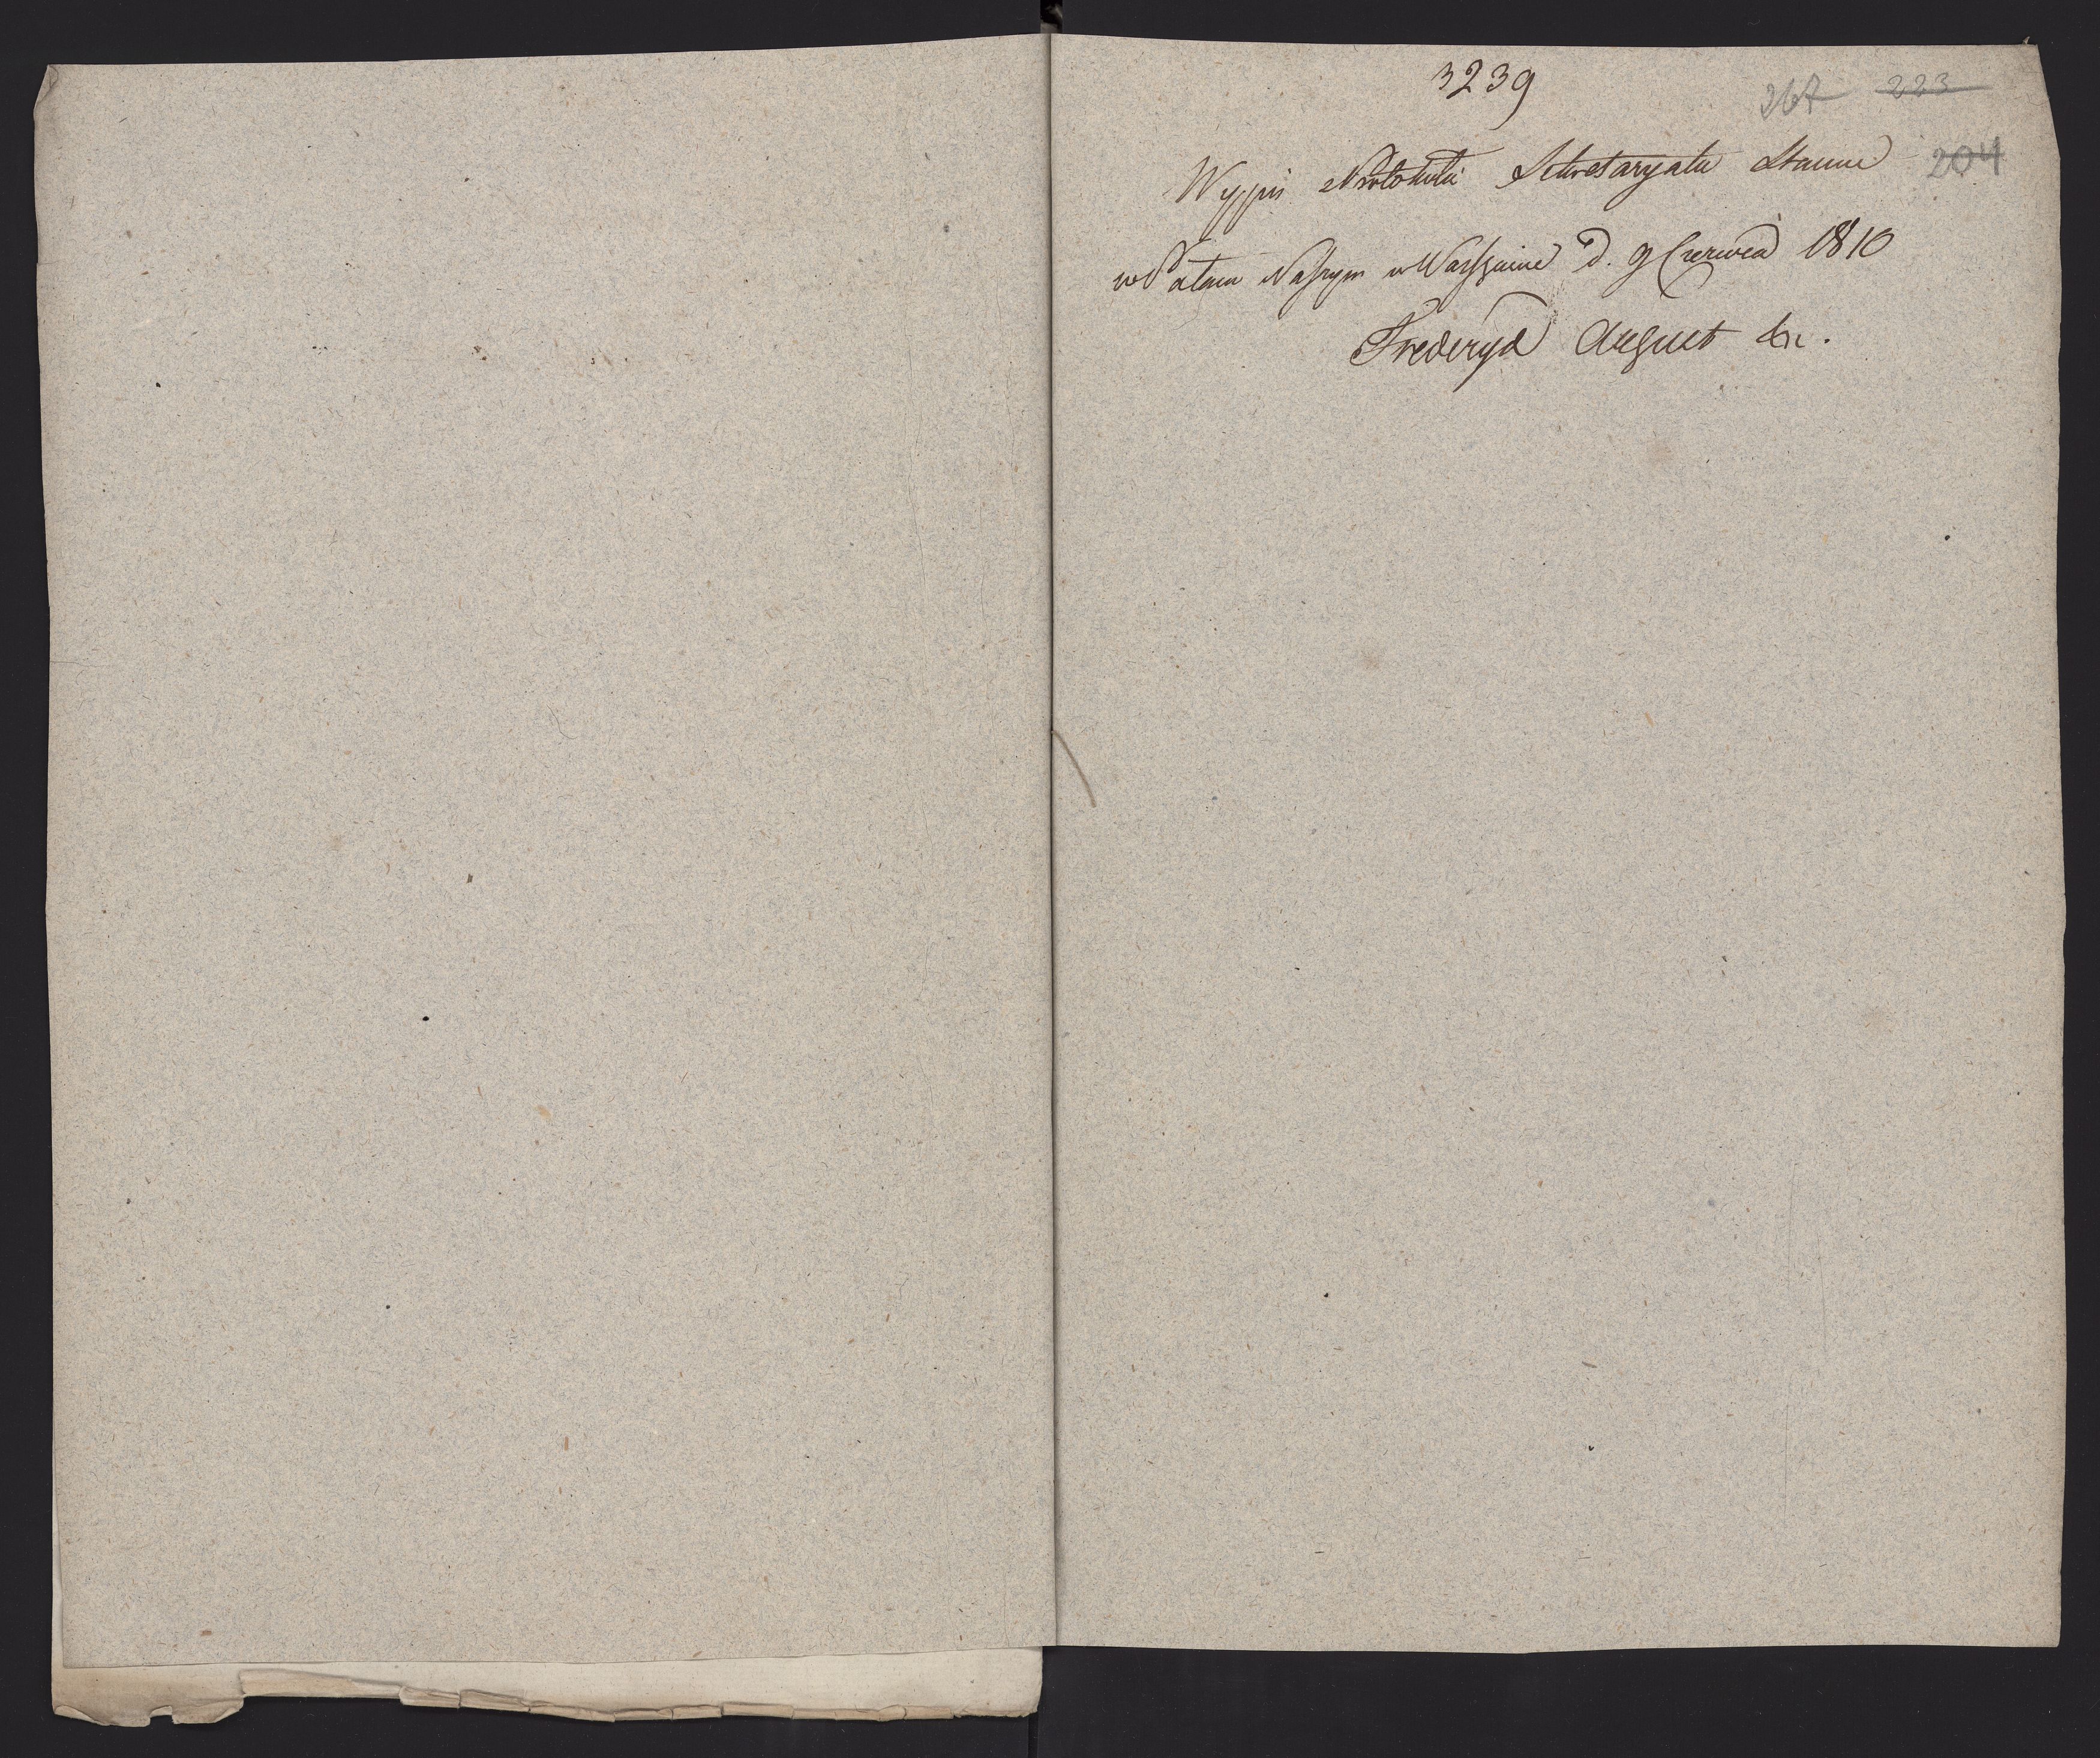 3239
267 223
Wypis z Protokułu Sekretaryatu Stanu 204
w Pałacu Naszym w Warszawie d. 9 Czerwca 1810
Frederyk August &c.